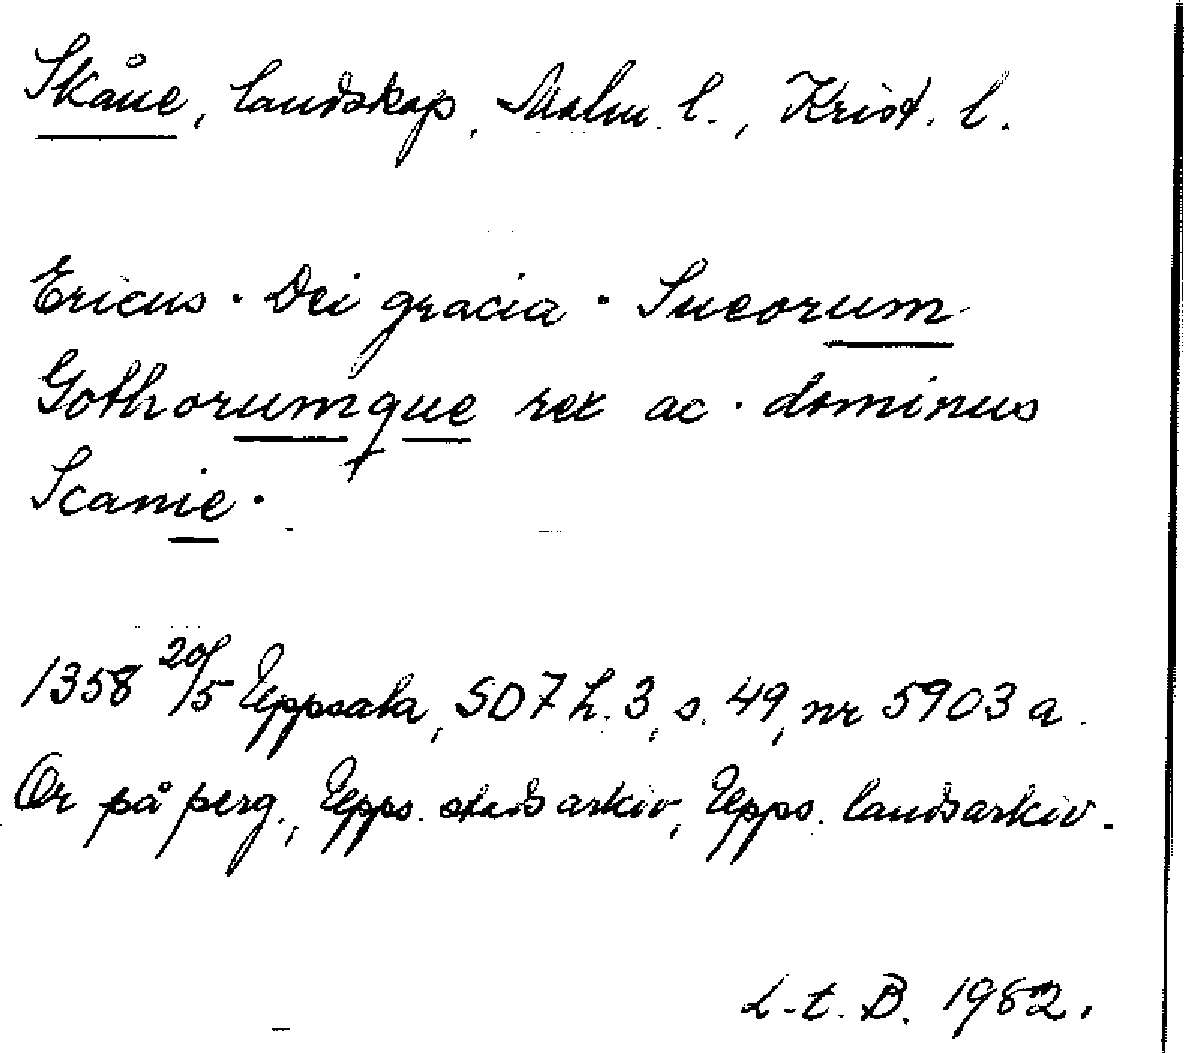 Skåne, landskap, Malm. l., Krist. l.
Ericus · Dei gracia · Sueorum
Gothorumque rex ac · dominus
Scanie ·
1358 20/5 Uppsala, SD7 h. 3, s. 49, nr 5903 a.
Or på perg., Upps. stadsarkiv, Upps. landsarkiv.
L-t. B. 1982.